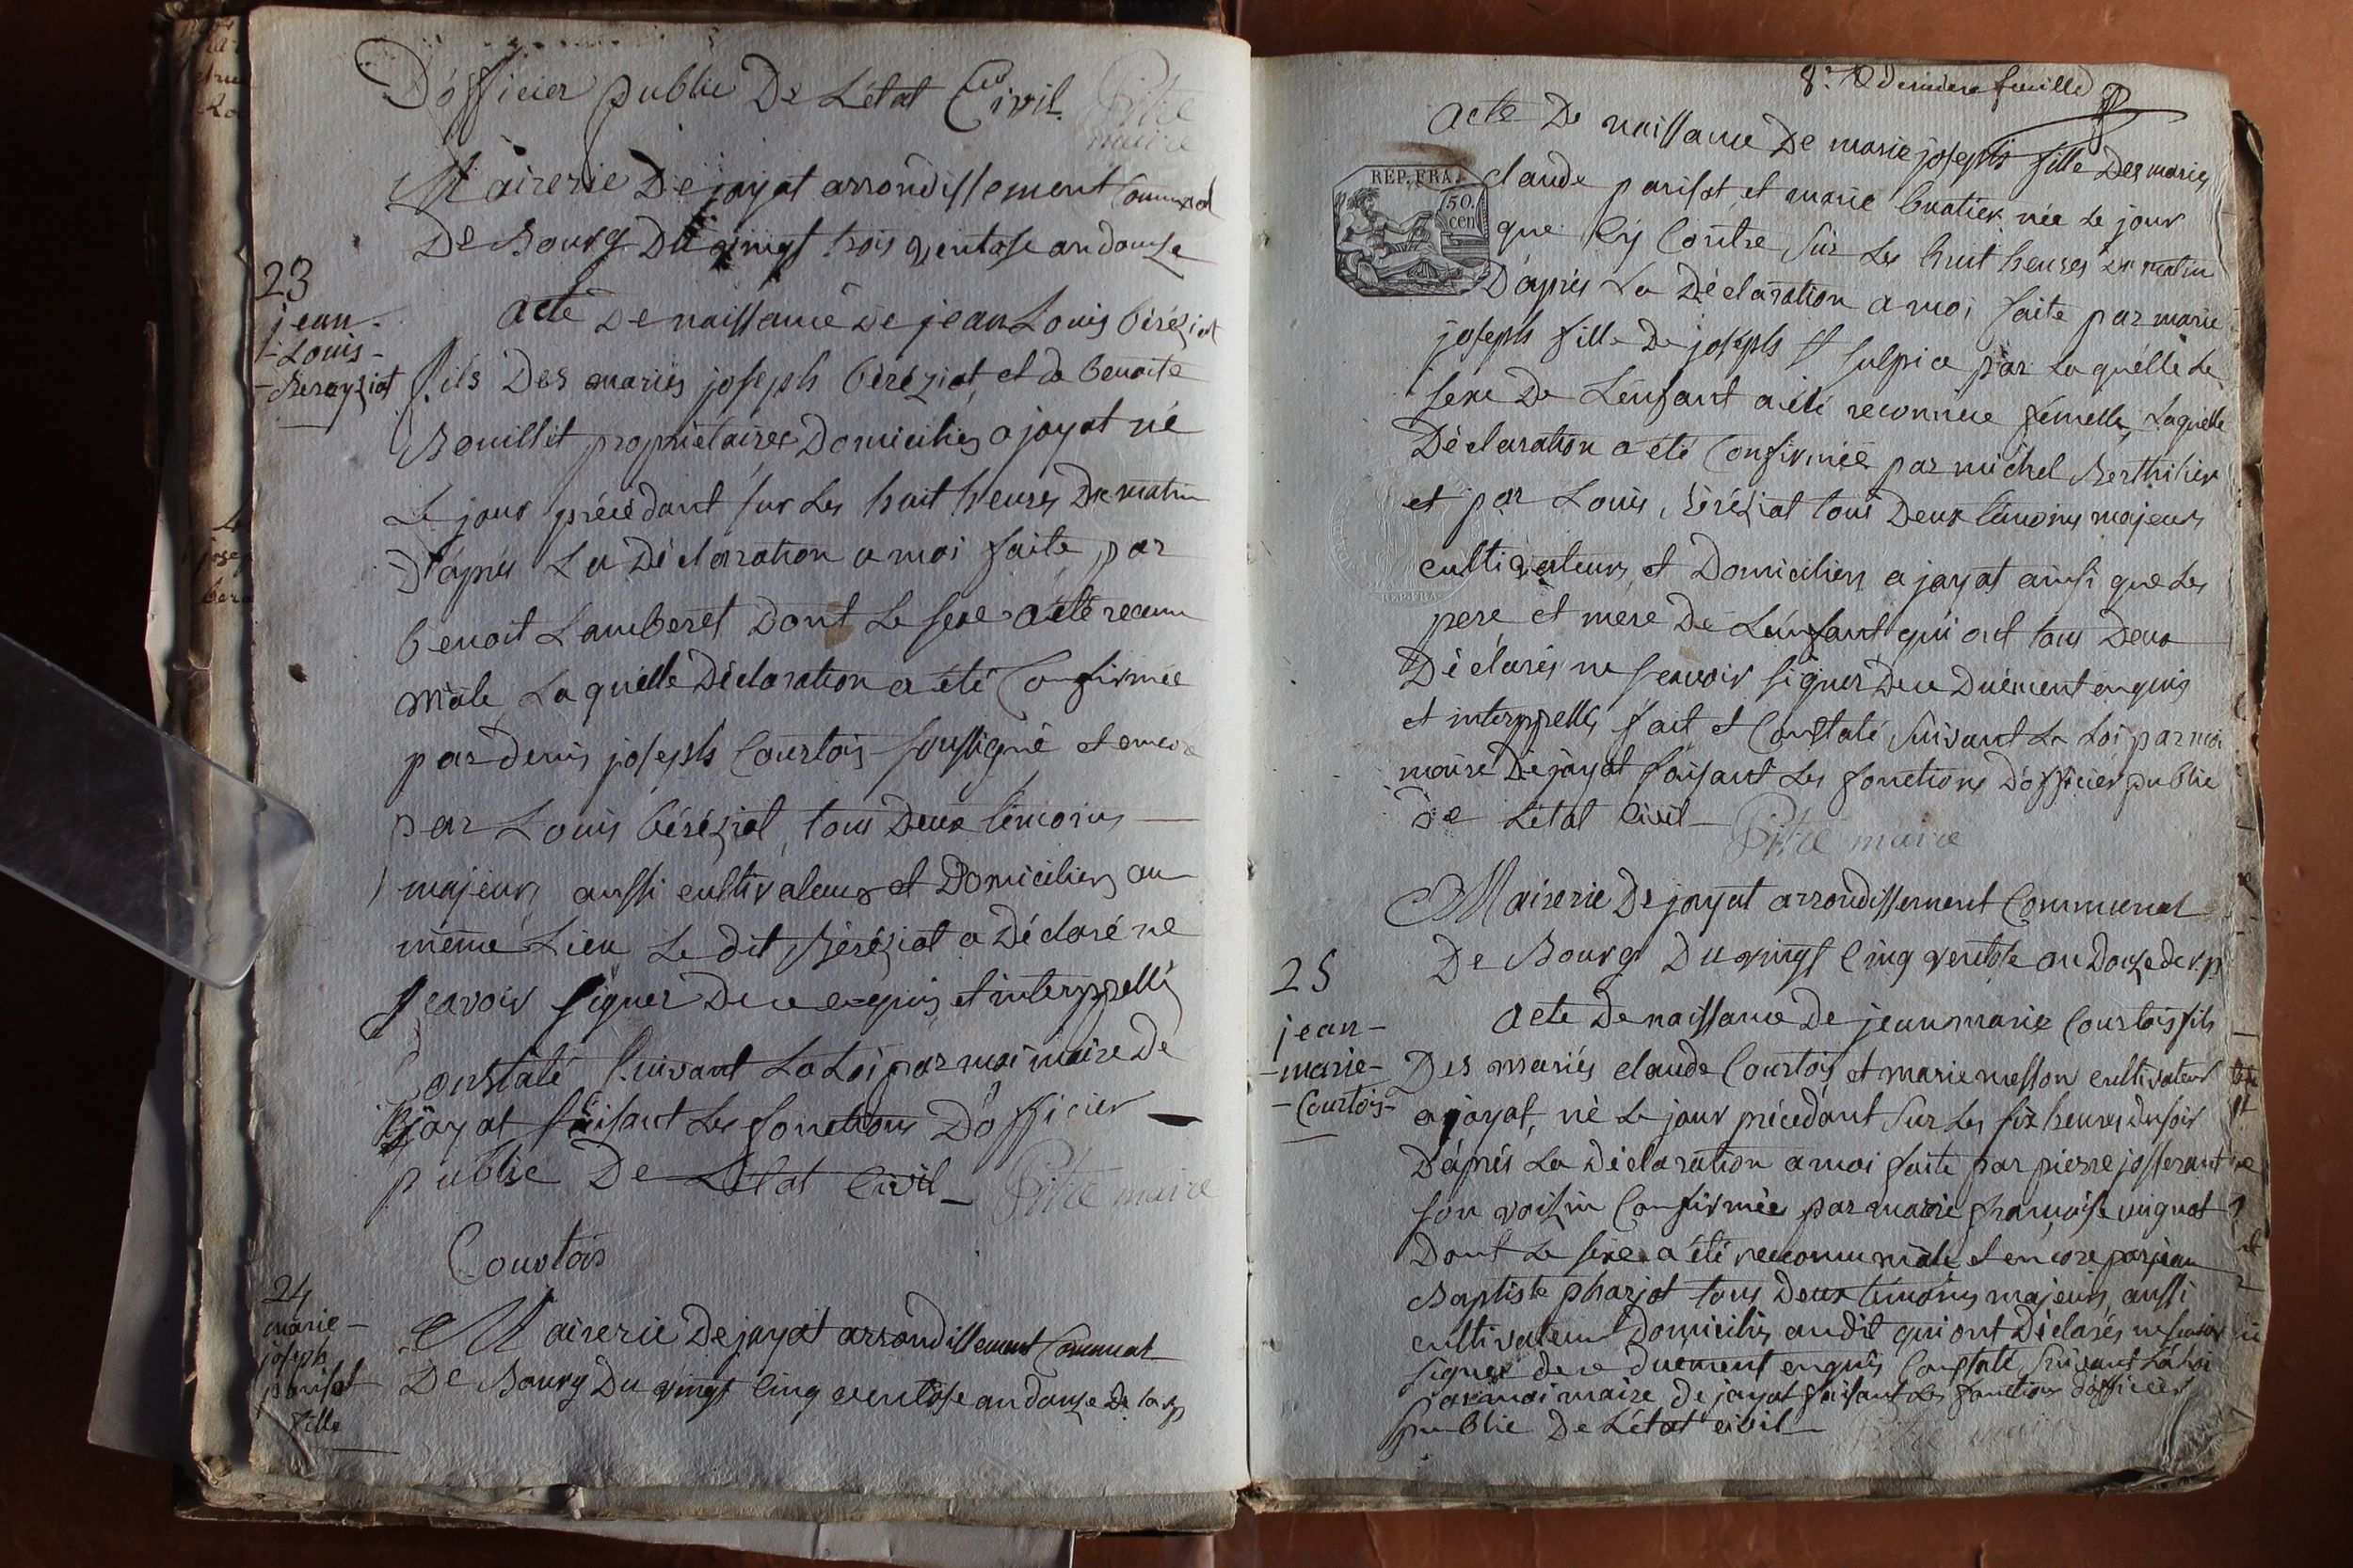 D'officier public De L'état Civil.
Pitre
maire
Mairerie De jayat arrondissement Communal
De Bourg Du vingt trois ventose an douze
23
jean-
-Louis-
-Bereyziat
acte De naissance De jean Louis béréziat
fils Des mariés joseph béréziat et de benoite
Bouillet propriétaires Domiciliés a jayat né
Le jour précédant sur Les huit heures Du matin
D'aprés La Déclaration a moi faite par
benoit Lamberet Dont Le sexe a été reconnu
mâle Laquelle Déclaration a été Confirmée
par denis joseph Courtois soussigné et encore
par Louis béréziat, tous Deux témoins
majeurs aussi cultivateurs et Domiciliés au
même Lieu Le dit Béréziat a Déclaré ne
scavoir signer De ce enquis et interppellé
Constaté suivant La Loi par moi maire De
jayat faisant Les fonctions D'officier
public De L'état Civil - Pitre maire
Courtois
24
marie-
joseph
parisot
fille
Mairerie De jayat arrondissement Communal
De Bourg Du vingt cinq ventose an douze De la rp
8e & Derniere feuille
acte De naissance De marie joseph fille Des mariés
REP. FRA.
50.
cen
claude parisot et marie buatier née Le jour
que Cy Contre sur Les huit heures Du matin
D'aprés La Déclaration a moi faite par marie
joseph fille De joseph st sulpice par Laquelle Le
sexe De L'enfant a été reconnue femelle, Laquelle
Déclaration a été Confirmée par michel Berthilier
et par Louis Béréziat tous Deux témoins majeurs
cultivateurs et Domiciliés a jayat ainsi que Les
REP. FRA.
pere et mere De L'enfant qui ont tous Deux
Déclarés ne scavoir signer De ce Duement enquis
et interppellés fait et Constaté suivant La Loi par moi
maire De jayat faisant Les fonctions D'officier public
De L'état Civil - Pitre maire
Mairerie De jayat arrondissement Communal
De Bourg Du vingt cinq ventose an Douze de r.p
25
jean-
-marie-
-Courtois-
acte De naissance De jean marie Courtois fils
Des mariés claude Courtois et marie messon cultivateurs
a jayat, né Le jour précédant sur Les six heures du soir
D'aprés La Déclaration a moi faite par pierre josserant
son voisin Confirmée par marie françoise
Dont Le sexe a été reconnu mâle et encore par jean
Baptiste pharjot tous Deux témoins majeurs aussi
cultivateurs Domiciliés audit qui ont Déclarés ne scavoir
signer de ce duement enquis Constaté suivant La Loi
par moi maire De jayat faisant Les fonctions d'officier
public De L'état civil - Pitre maire